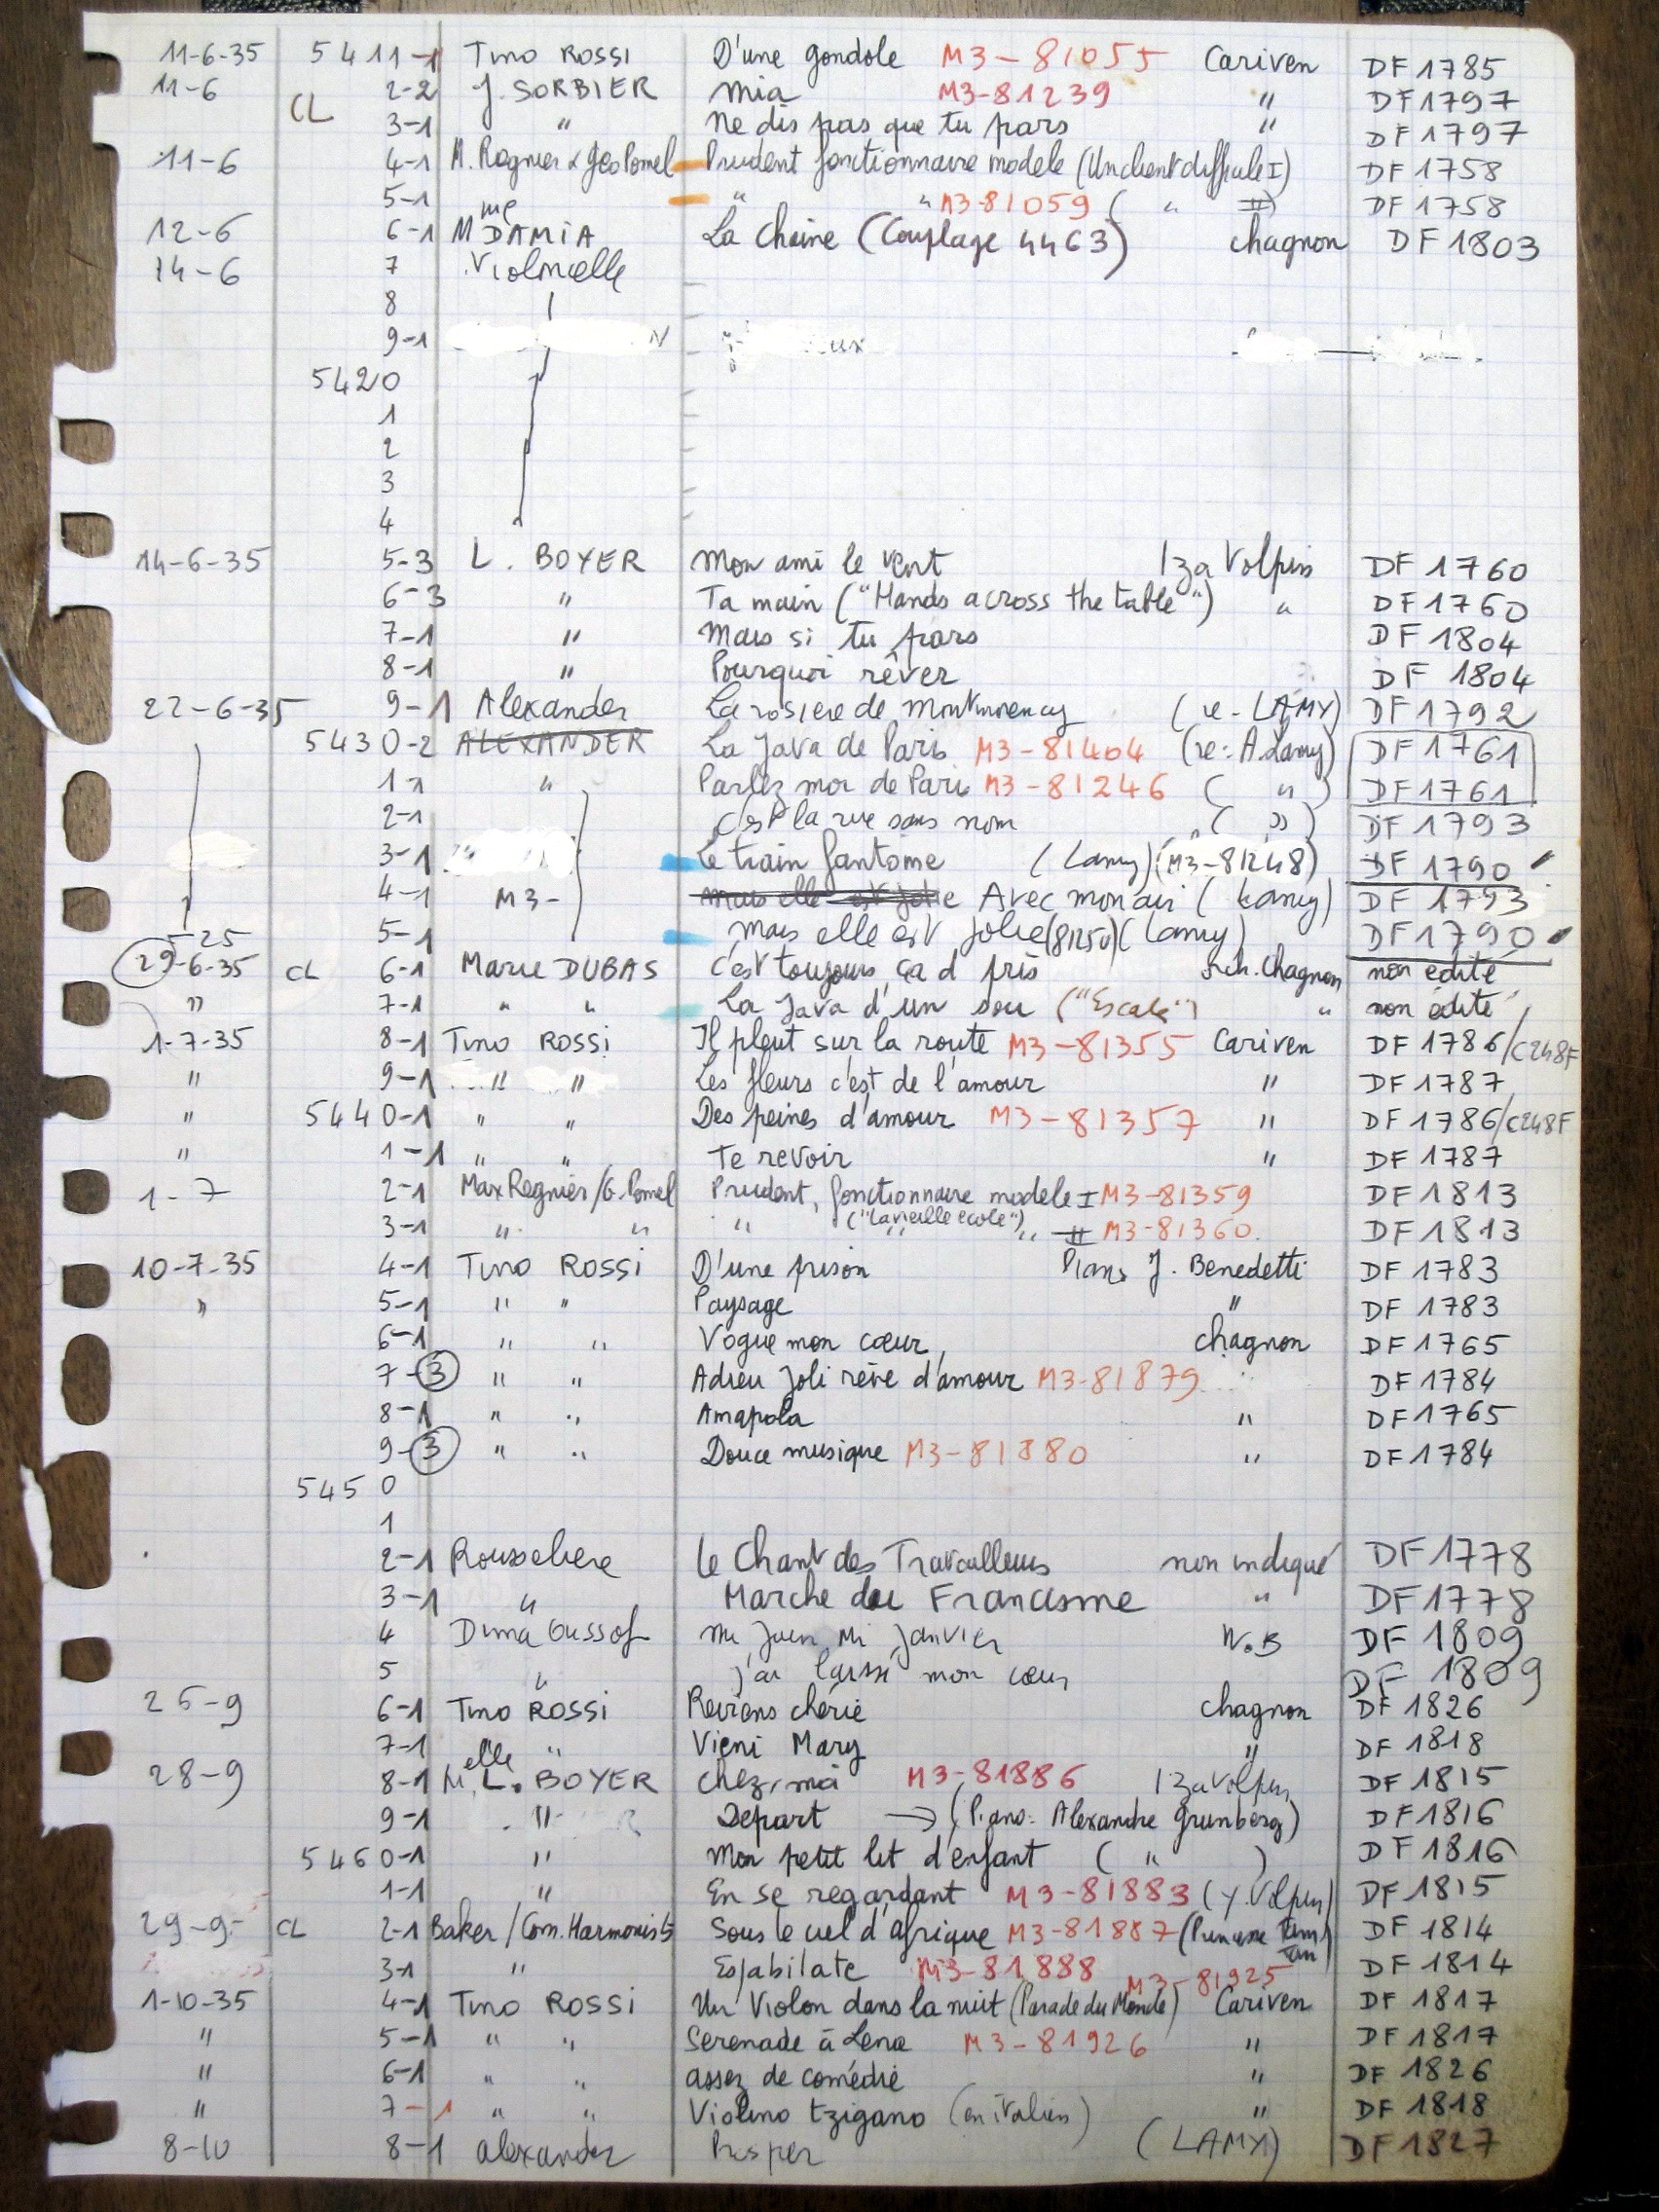 11-6-35 5411-1 Tino ROSSI D'une gondole M3-81055 Cariven DF 1785
11-6 2-2 J. SORBIER Mia M3-81239 " DF 1797
CL 3-1 " Ne dis pas que tu pars " DF 1797
11-6 4-1 M. Regnier & Géo Pomel Prudent fonctionnaire modele (Un client difficile I) DF 1758
5-1 " " M3-81059 ( " II) DF 1758
12-6 6-1 Mme DAMIA La Chaine (Couplage 4463) Chagnon DF 1803
14-6 7 Violoncelle
8
9-1
5420
1
2
3
4
14-6-35 5-3 L. BOYER Mon ami le vent Iza Volpin DF 1760
6-3 " Ta main ("Hands across the table") " DF 1760
7-1 " Mais si tu pars DF 1804
8-1 " Pourquoi rêver DF 1804
22-6-35 9-1 Alexander La rosiere de Montmorency (re-LAMY) DF 1792
5430-2 ALEXANDER La Java de Paris M3-81404 (re: A. Lamy) DF 1761
1-1 " Parlez moi de Paris M3-81246 ( " ) DF 1761
2-1 C'est la rue sans nom ( " ) DF 1793
3-1 Le train fantome (Lamy) (M3-81248) DF 1790
4-1 M3- Mais elle est jolie Avec mon air (Lamy) DF 1793
25 5-1 Mais elle est Jolie (81250) (Lamy) DF 1790
29-6-35 CL 6-1 Marie DUBAS C'est toujours ça d pris Orch. Chagnon non édité
" 7-1 " " La Java d'un sou ("Escale") " non édité
1-7-35 8-1 Tino ROSSI Il pleut sur la route M3-81355 Cariven DF 1786/C248F
" 9-1 " " Les fleurs c'est de l'amour " DF 1787
" 5440-1 " " Des peines d'amour M3-81357 " DF 1786/C248F
" 1-1 " " Te revoir " DF 1787
1-7 2-1 Max Regnier/G. Pomel Prudent, fonctionnaire modele I M3-81359 DF 1813
3-1 " " " ("La vieille ecole") " II M3-81360. DF 1813
10-7-35 4-1 Tino ROSSI D'une prison Piano J. Benedetti DF 1783
" 5-1 " " Paysage " DF 1783
6-1 " " Vogue mon cœur Chagnon DF 1765
7-3 " " Adieu Joli rêve d'amour M3-81879 DF 1784
8-1 " " Amapola " DF 1765
9-3 " " Douce musique M3-81880 " DF 1784
5450
1
2-1 Rousseliere Le Chant des Travailleurs non indiqué DF 1778
3-1 " Marche du Francisme " DF 1778
4 Dima Oussof Mi Juin Mi Janvier W.B DF 1809
5 " J'ai laissé mon cœur DF 1809
25-9 6-1 Tino ROSSI Reviens chérie Chagnon DF 1826
7-1 " Vieni Mary " DF 1818
28-9 8-1 Melle L. BOYER Chez moi M3-81886 Iza Volpin DF 1815
9-1 " Depart → (Piano: Alexandre Grunberg) DF 1816
5460-1 " Mon petit lit d'enfant ( " ) DF 1816
1-1 " En se regardant M3-81883 (Y. Volpin) DF 1815
29-9- CL 2-1 Baker/Com. Harmonists Sous le ciel d'afrique M3-81887 (Princesse Tam Tam) DF 1814
3-1 " Espabilate M3-81888 DF 1814
1-10-35 4-1 Tino ROSSI Un Violon dans la nuit (Parade du Monde) M3-81925 Cariven DF 1817
" 5-1 " " Serenade à Lena M3-81926 " DF 1817
" 6-1 " " assez de comédie " DF 1826
" 7-1 " " Violino tzigano (en italien) " DF 1818
8-10 8-1 Alexander Prosper (LAMY) DF 1827